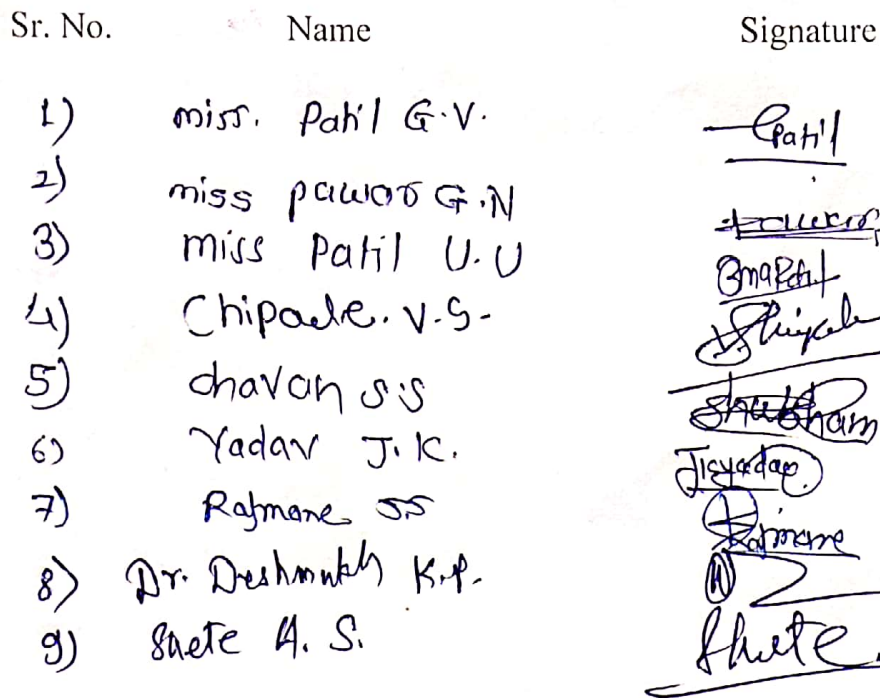 Sr. No. Name Signature
1) miss. Patil G.V. Patil
2) miss pawar G.N Pawar
3) miss Patil U.U UmaPatil
4) Chipade. V.S.
5) chavan S.S Shubham
6) Yadav J.K. J.K.yadav
7) Rajmane SS Rajmane
8) Dr. Deshmukh K.P.
9) Shete A. S. Shete